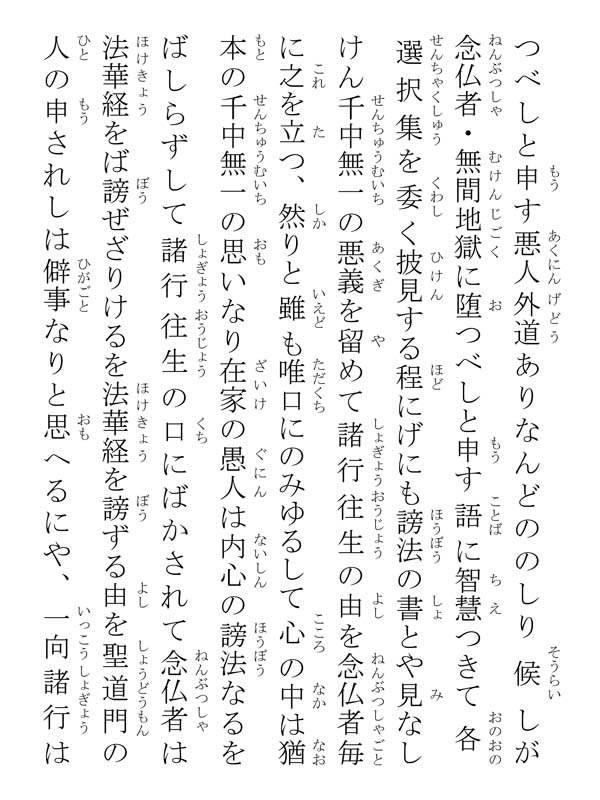 つべしと申す悪人外道ありなんどののしり候しが
念仏者・無間地獄に堕つべしと申す語に智慧つきて各
選択集を委く披見する程にげにも謗法の書とや見なし
けん千中無一の悪義を留めて諸行往生の由を念仏者毎
に之を立つ、然りと雖も唯口にのみゆるして心の中は猶
本の千中無一の思いなり在家の愚人は内心の謗法なるを
ばしらずして諸行往生の口にばかされて念仏者は
法華経をば謗ぜざりけるを法華経を謗ずる由を聖道門の
人の申されしは僻事なりと思へるにや、一向諸行は